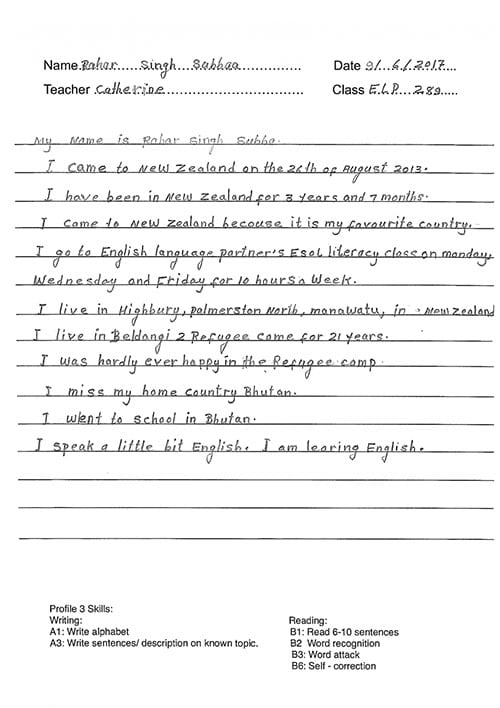 Name Rahar Singh Subhaa
Date 9/6/2017
Teacher Catherine
Class E.L.P 289
My Name is Rahar Singh Subba.
I came to New Zealand on the 26th of August 2013.
I have been in New Zealand for 3 years and 7 months.
I come to New Zealand becouse it is my favourite country.
I go to English language partner's Esol literacy class on monday,
Wednesday and Friday for 10 hours a Week.
I live in Highbury, palmerston North, manawatu, in New Zealand
I live in Beldangi 2 Refugee came for 21 years.
I was hardly ever happy in the Refugee comp
I miss my home country Bhutan.
I went to school in Bhutan.
I speak a little bit English. I am learing English.
Profile 3 Skills:
Writing:
A1: Write alphabet
A3: Write sentences/ description on known topic.
Reading:
B1: Read 6-10 sentences
B2 Word recognition
B3: Word attack
B6: Self - correction